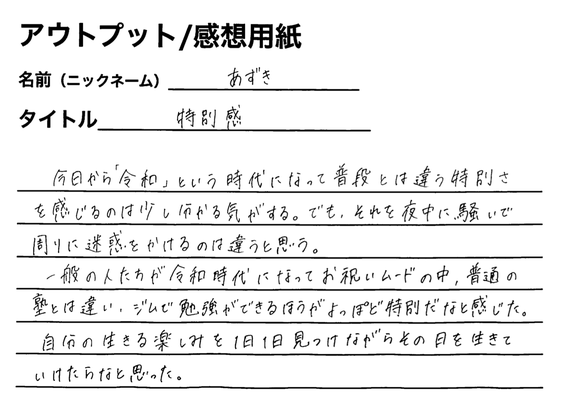 アウトプット/感想用紙
名前（ニックネーム） あずき
タイトル 特別感
今日から「令和」という時代になって普段とは違う特別さ
を感じるのは少し分かる気がする。でも、それを夜中に騒いで
周りに迷惑をかけるのは違うと思う。
一般の人たちが令和時代になってお祝いムードの中、普通の
塾とは違い、ジムで勉強ができるほうがよっぽど特別だなと感じた。
自分の生きる楽しみを1日1日見つけながらその日を生きて
いけたらなと思った。